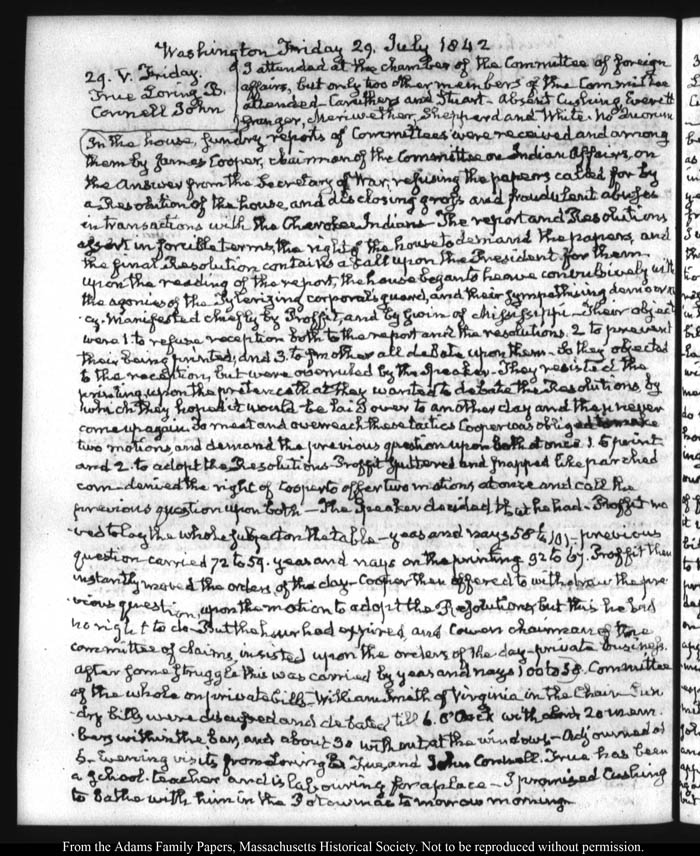 Washington Friday 29. July 1842
29. V. Friday.
True Loring B.
Connell John
I attended at the chamber of the Committee of foreign
affairs, but only two other members of the Committee
attended Caruthers and Stuart - absent Cushing, Everett
Granger, Meriwether, Sheppard and White. No Quorum
In the house, sundry reports of Committees were received and among
them by James Cooper, chairman of the Committee on Indian Affairs, on
the Answer from the Secretary of War, refusing the papers called for by
a Resolution of the house, and disclosing gross and fraudulent abuses
in transactions with the Cherokee Indians - The report and Resolutions
assert in forcible terms, the right of the house to demand the papers, and
the final Resolution contains a call upon the President for them.
Upon the reading of the report, the house began to heave convulsively with
the agonies of the Tylerizing corporal's guard, and their sympathising democra
cy. Manifested chiefly by Proffit, and by Gwin of Mississippi - Their object
were 1. to refuse reception both to the report and the resolutions. 2 to prevent
their being printed, and 3. to smother all debate upon them - So they objected
to the reception, but were overruled by the Speaker - They resisted the
printing, upon the pretence that they wanted to debate the Resolutions, by
which they hoped it would be laid over to another day and then never
come up again. To meet and overreach these tactics Cooper was obliged to make
two motions, and demand the previous question upon both at once 1. to print
and 2. to adopt the Resolutions - Proffit sputtered and snapped like parched
corn - denied the right of Cooper to offer two motions at once and call the
previous question upon both - The Speaker decided that he had - Proffit mo
ved to lay the whole subject on the table - yeas and nays 58 to 101 - previous
question carried 72 to 59. yeas and nays on the printing 92 to 67. Proffit then
instantly moved the orders of the day - Cooper then offered to withdraw the pre
vious question, upon the motion to adopt the Resolutions, but this he had
no right to do - But the hour had expired, and Cowen chairman of the
committee of claims, insisted upon the orders of the day - private business.
after some struggle this was carried by yeas and nays 100 to 38. Committee
of the whole on private bills - William Smith of Virginia in the Chair - Sun
dry bills were discussed and debated till 6. O'Clock with about 20 mem
bers within the bar, and about 30 without at the windows - Adjourned at
6 - Evening visits from Loring B. True, and John Connell. True has been
a school-teacher and is labouring for a place - I promised Cushing
to bathe with him in the Potowmac to morrow morning
From the Adams Family Papers, Massachusetts Historical Society. Not to be reproduced without permission.